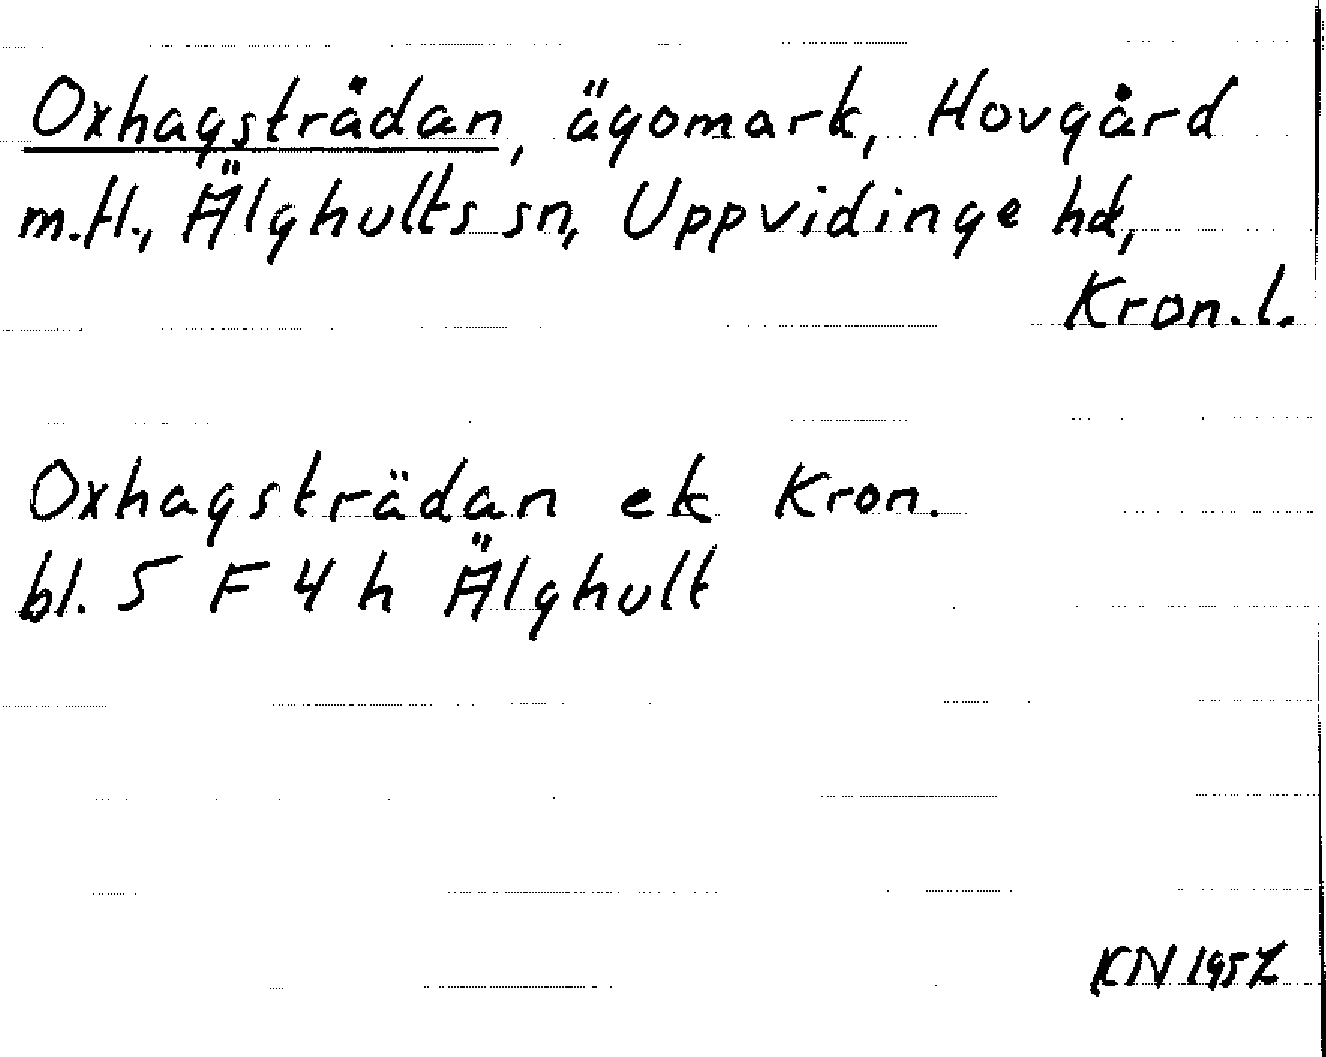 Oxhagsträdan, ägomark, Hovgård
m.fl., Älghults sn, Uppvidinge hd,
Kron.l.
Oxhagsträdan ek Kron.
bl. 5 F 4 h Älghult
KN 1957